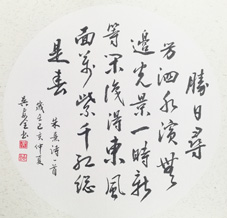 勝日尋
芳泗水濱無
邊光景一時新
等閑識得東風
面萬紫千紅總
是春
朱熹詩一首
歲在己亥仲夏